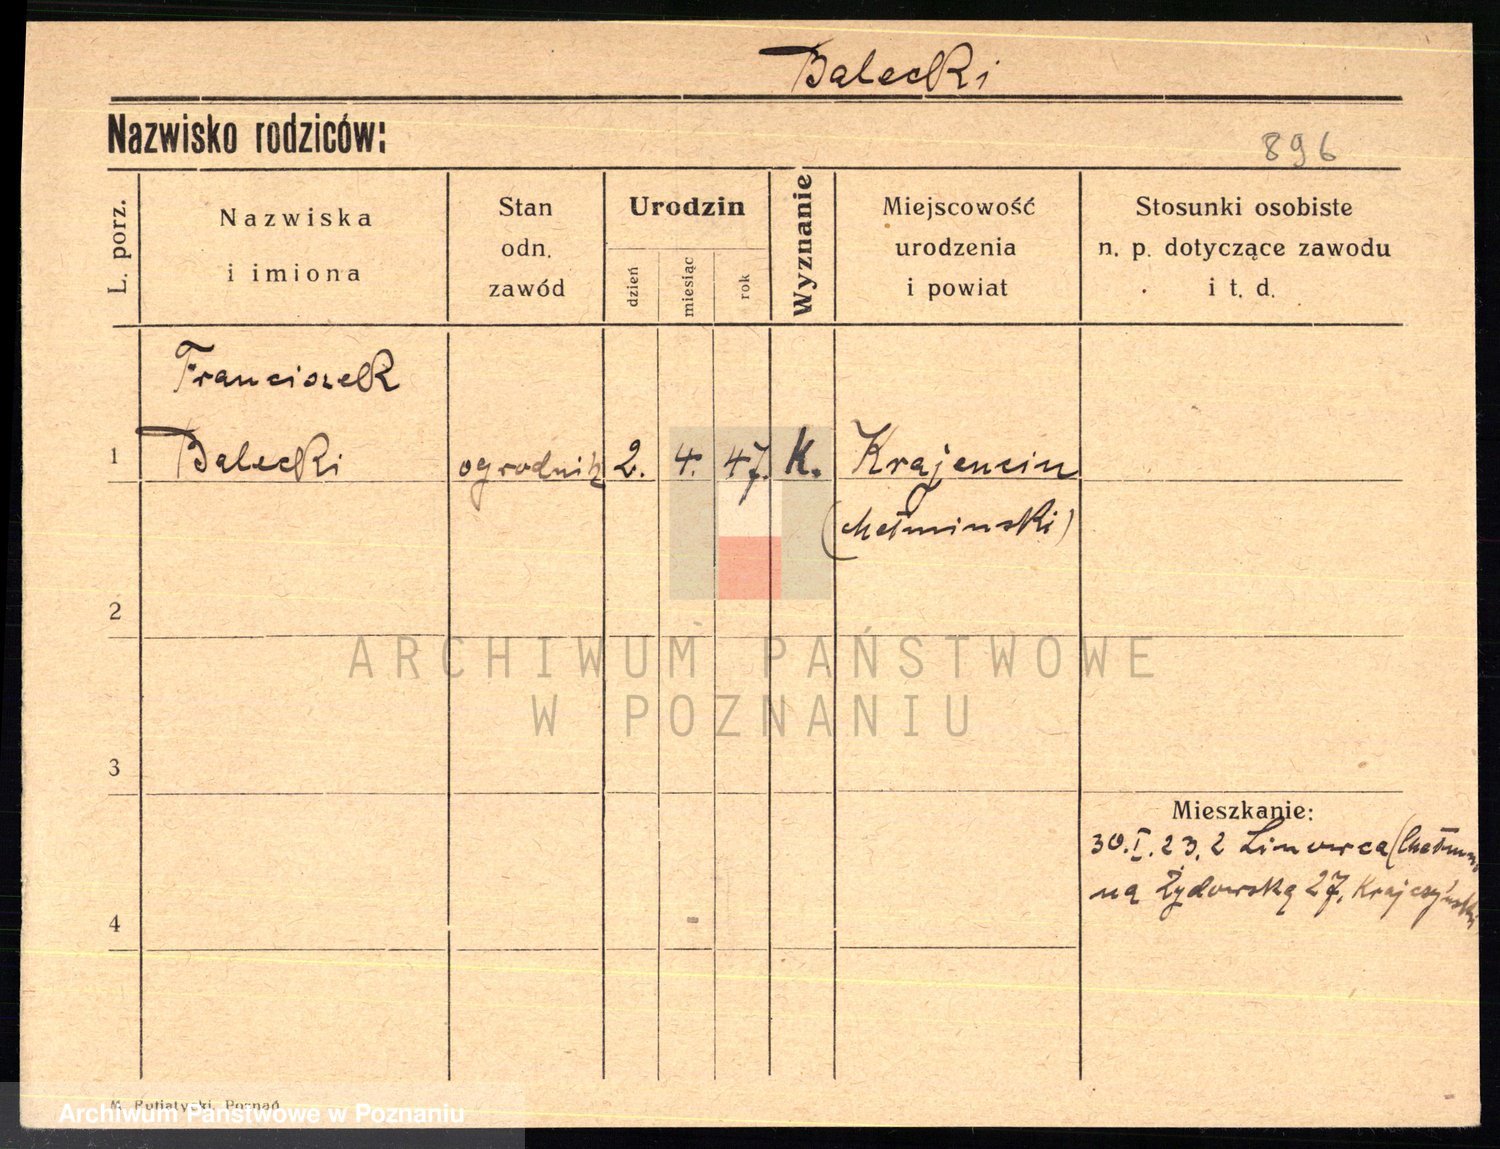 Balecki
Nazwisko rodziców:
896
L. porz.
Nazwiska
i imiona
Stan
odn.
zawód
Urodzin
dzień
miesiąc
rok
Wyznanie
Miejscowość
urodzenia
i powiat
Stosunki osobiste
n. p. dotyczące zawodu
i t. d.
Franciszek
1 Balecki ogrodnik 2. 4. 47. K. Krajencin
(chełminski)
2
ARCHIWUM PAŃSTWOWE
W POZNANIU
3
Mieszkanie:
30.I.23. z Linowca (Chełmno
na Żydowską 27, Krajczyński
4
M. Putiatycki, Poznań
Archiwum Państwowe w Poznaniu